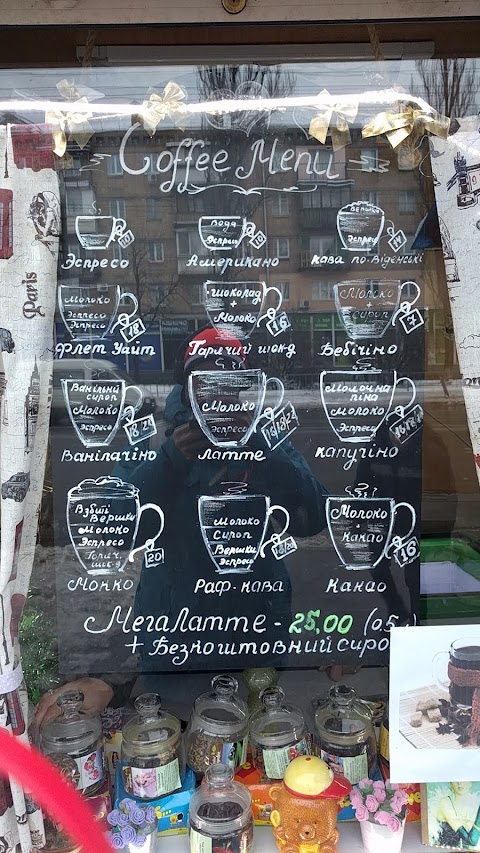 Coffee Menu
Paris
Эспресо 10
Вода
Эспресо 10
Американо
Вершки
Эспресо 14
Кава по-Віденські
Молоко
Эспресо
Эспресо 18
Флет Уайт
шоколад
+
Молоко 16
Гарячий шок-д
Молоко
+
сироп 7
Бебічіно
Ванільний
сироп
Молоко
Эспресо 18 21
Ванілачіно
Молоко
Эспресо 16 18 21
Латте
Молочна
піна
Молоко
Эспресо
Капучіно
Взбиті
Вершки
Молоко
Эспресо
Гаряч.
шок-д 20
Мокко
Молоко
Сироп
Вершки
Эспресо
Раф-кава
Молоко
+
Какао 16
Какао
МегаЛатте - 25,00 (0.5
+ Безкоштовний сиро